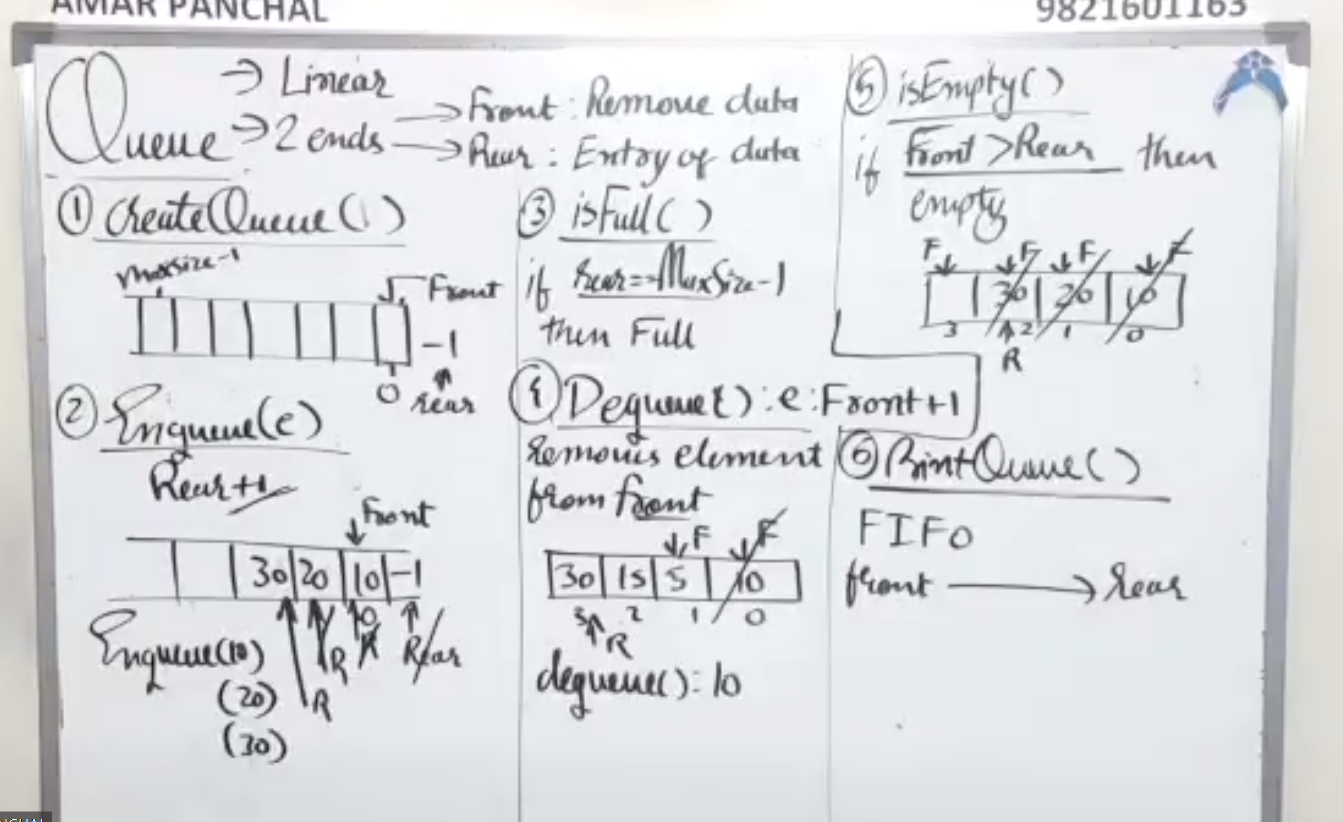 AMAR PANCHAL
9821601163
Queue → Linear
→ 2 ends → Front : Remove data
→ Rear : Entry of data
① CreateQueue()
Maxsize-1
Front
-1
0 rear
② Enqueue(e)
Rear+1
Front
30 20 10 -1
0
R R R Rear
Enqueue(10)
(20)
(30)
③ isFull()
if rear==MaxSize-1
then Full
④ Dequeue() : e : Front+1
Removes element
from front
F F
30 15 5 10
3 2 1 0
R
dequeue() : 10
⑤ isEmpty()
if Front>Rear then
empty
F F F F
30 20 10
3 2 1 0
R
⑥ PrintQueue()
FIFO
front → rear